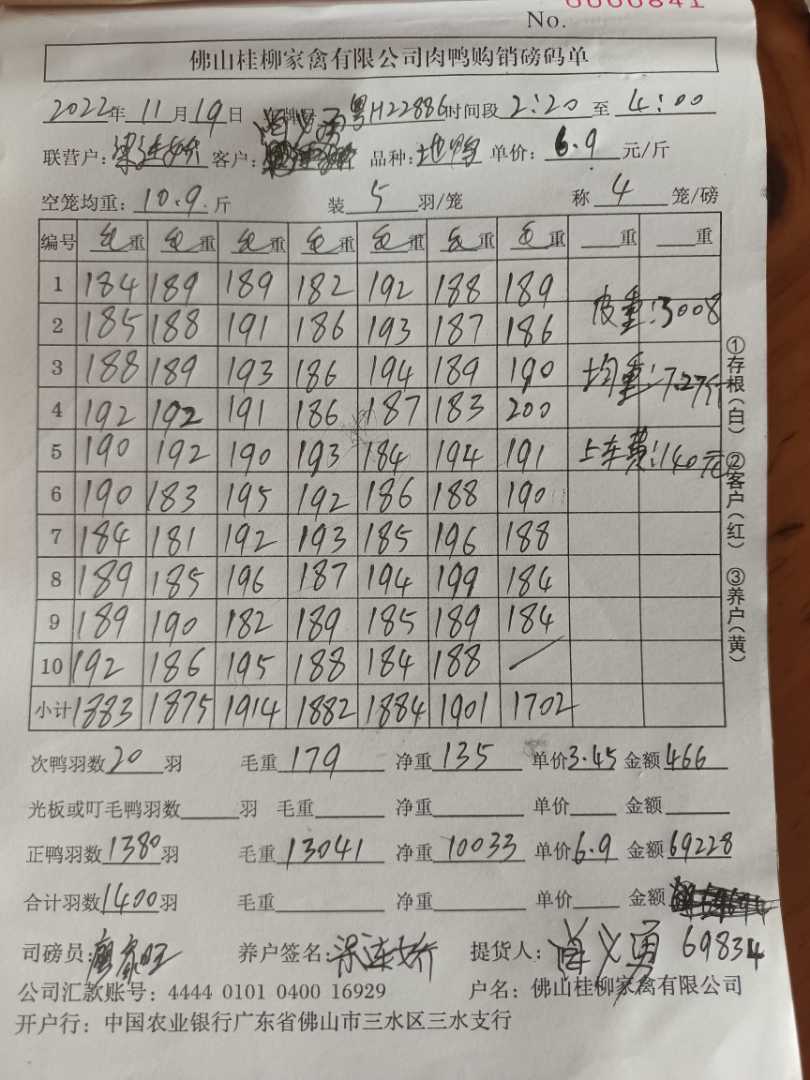 No. 0000841
佛山桂柳家禽有限公司肉鸭购销磅码单
2022年 11月19日 车牌号 粤H22886 时间段 2:20 至 4:00
联营户: 梁连娇 客户: 肖义勇 品种: 地鸭 单价: 6.9 元/斤
空笼均重: 10.9 斤 装 5 羽/笼 称 4 笼/磅
编号 毛重 毛重 毛重 毛重 毛重 毛重 毛重 重 重
1 184 189 189 182 192 188 189
2 185 188 191 186 193 187 186 皮重:3008
3 188 189 193 186 194 189 190 均重:7.27斤
4 192 192 191 186 187 183 200
5 190 192 190 193 184 194 191 上车费:140元
6 190 183 195 192 186 188 190
7 184 181 192 193 185 196 188
8 189 185 196 187 194 199 184
9 189 190 182 189 185 189 184
10 192 186 195 188 184 188
小计 1883 1875 1914 1882 1884 1901 1702
①存根(白) ②客户(红) ③养户(黄)
次鸭羽数 20 羽 毛重 179 净重 135 单价 3.45 金额 466
光板或叮毛鸭羽数 羽 毛重 净重 单价 金额
正鸭羽数 1380 羽 毛重 13041 净重 10033 单价 6.9 金额 69228
合计羽数 1400 羽 毛重 净重 单价 金额
司磅员: 养户签名: 梁连娇 提货人: 肖义勇 69834
公司汇款账号: 4444 0101 0400 16929 户名: 佛山桂柳家禽有限公司
开户行: 中国农业银行广东省佛山市三水区三水支行